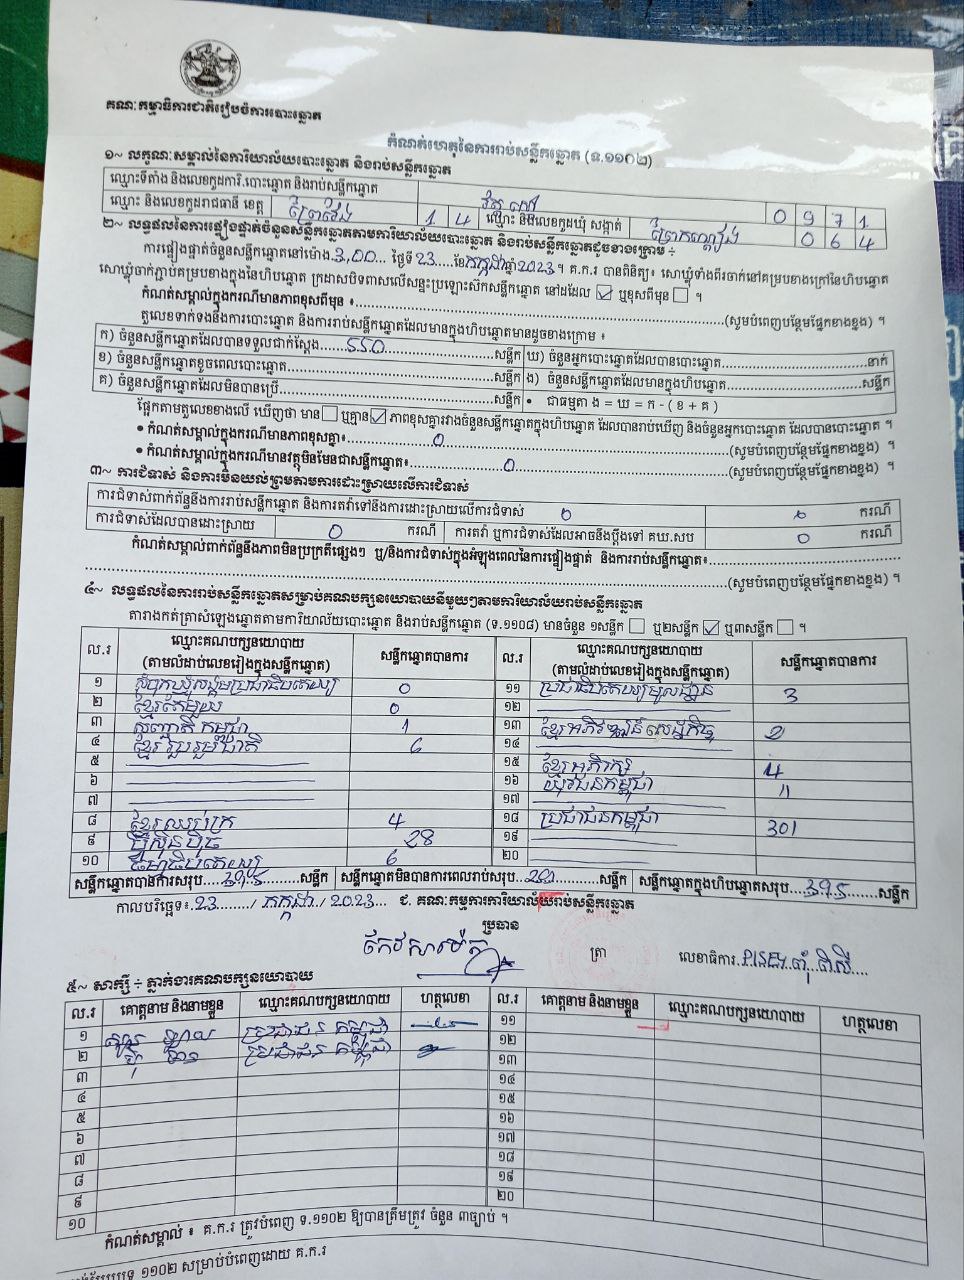 គណៈកម្មាធិការជាតិរៀបចំការបោះឆ្នោត
កំណត់ហេតុនៃការរាប់សន្លឹកឆ្នោត (ទ.១១០២)
១~ លក្ខណៈសម្គាល់នៃការិយាល័យបោះឆ្នោត និងរាប់សន្លឹកឆ្នោត
ឈ្មោះទីតាំង និងលេខកូដការិ.បោះឆ្នោត និងរាប់សន្លឹកឆ្នោត 0 9 7 1
ឈ្មោះ និងលេខកូដរាជធានី ខេត្ត ព្រៃវែង 1 4 ឈ្មោះ និងលេខកូដឃុំ សង្កាត់ 0 6 4
២~ លទ្ធផលនៃការផ្ទៀងផ្ទាត់ចំនួនសន្លឹកឆ្នោតតាមការិយាល័យបោះឆ្នោត និងរាប់សន្លឹកឆ្នោតដូចខាងក្រោម ÷
ការផ្ទៀងផ្ទាត់ចំនួនសន្លឹកឆ្នោតនៅម៉ោង.3,00... ថ្ងៃទី 23.....ខែកក្កដាឆ្នាំ 2023។ គ.ក.រ បានពិនិត្យ៖ សោឃ្លុំទាំងពីរចាក់នៅគម្របខាងក្រៅនៃហិបឆ្នោត
សោឃ្លុំចាក់ភ្ជាប់គម្របខាងក្នុងនៃហិបឆ្នោត ក្រដាសបិទពាសលើសន្ទះប្រឡោះស៊កសន្លឹកឆ្នោត នៅដដែល ☑ ឬខុសពីមុន ☐ ។
កំណត់សម្គាល់ក្នុងករណីមានភាពខុសពីមុន ៖......(សូមបំពេញបន្ថែមផ្នែកខាងខ្នង) ។
តួលេខទាក់ទងនឹងការបោះឆ្នោត និងការរាប់សន្លឹកឆ្នោតដែលមានក្នុងហិបឆ្នោតមានដូចខាងក្រោម ៖
ក) ចំនួនសន្លឹកឆ្នោតដែលបានទទួលជាក់ស្តែង......550......សន្លឹក ឃ) ចំនួនអ្នកបោះឆ្នោតដែលបានបោះឆ្នោត......នាក់
ខ) ចំនួនសន្លឹកឆ្នោតខូចពេលបោះឆ្នោត......សន្លឹក ង) ចំនួនសន្លឹកឆ្នោតដែលមានក្នុងហិបឆ្នោត......សន្លឹក
គ) ចំនួនសន្លឹកឆ្នោតដែលមិនបានប្រើ......សន្លឹក • ជាធម្មតា ង = ឃ = ក - ( ខ + គ )
ផ្អែកតាមតួលេខខាងលើ ឃើញថា មាន☐ ឬគ្មាន☑ ភាពខុសគ្នារវាងចំនួនសន្លឹកឆ្នោតក្នុងហិបឆ្នោត ដែលបានរាប់ឃើញ និងចំនួនអ្នកបោះឆ្នោត ដែលបានបោះឆ្នោត ។
• កំណត់សម្គាល់ក្នុងករណីមានភាពខុសគ្នា៖......0......(សូមបំពេញបន្ថែមផ្នែកខាងខ្នង) ។
• កំណត់សម្គាល់ក្នុងករណីមានវត្ថុមិនមែនជាសន្លឹកឆ្នោត៖......0......(សូមបំពេញបន្ថែមផ្នែកខាងខ្នង) ។
៣~ ការជំទាស់ និងការមិនយល់ព្រមតាមការដោះស្រាយលើការជំទាស់
ការជំទាស់ពាក់ព័ន្ធនឹងការរាប់សន្លឹកឆ្នោត និងការតវ៉ាទៅនឹងការដោះស្រាយលើការជំទាស់ ករណី
ការជំទាស់ដែលបានដោះស្រាយ 0 ករណី ការតវ៉ា ឬការជំទាស់ដែលអាចនឹងប្តឹងទៅ គឃ.សប 0 ករណី
កំណត់សម្គាល់ពាក់ព័ន្ធនឹងភាពមិនប្រក្រតីផ្សេងៗ ឬ/និងការជំទាស់ក្នុងអំឡុងពេលនៃការផ្ទៀងផ្ទាត់ និងការរាប់សន្លឹកឆ្នោត៖......
......(សូមបំពេញបន្ថែមផ្នែកខាងខ្នង) ។
៤~ លទ្ធផលនៃការរាប់សន្លឹកឆ្នោតសម្រាប់គណបក្សនយោបាយនីមួយៗតាមការិយាល័យរាប់សន្លឹកឆ្នោត
តារាងកត់ត្រាសំឡេងឆ្នោតតាមការិយាល័យបោះឆ្នោត និងរាប់សន្លឹកឆ្នោត (ទ.១១០៨) មានចំនួន ១សន្លឹក ☐ ឬ២សន្លឹក ☑ ឬ៣សន្លឹក ☐ ។
ល.រ ឈ្មោះគណបក្សនយោបាយ (តាមលំដាប់លេខរៀងក្នុងសន្លឹកឆ្នោត) សន្លឹកឆ្នោតបានការ ល.រ ឈ្មោះគណបក្សនយោបាយ (តាមលំដាប់លេខរៀងក្នុងសន្លឹកឆ្នោត) សន្លឹកឆ្នោតបានការ
១ សំបុកឃ្មុំសង្គមប្រជាធិបតេយ្យ 0 ១១ ប្រជាធិបតេយ្យមូលដ្ឋាន 3
២ ខ្មែរតែមួយ 0 ១២
៣ សញ្ជាតិកម្ពុជា 1 ១៣ ខ្មែរអភិវឌ្ឍន៍សេដ្ឋកិច្ច 2
៤ ខ្មែររួបរួមជាតិ 6 ១៤
៥ ១៥ ខ្មែរអភិរក្ស 4
៦ ១៦ យុវជនកម្ពុជា 11
៧ ១៧
៨ ខ្មែរឈប់ក្រ 4 ១៨ ប្រជាជនកម្ពុជា 301
៩ ហ៊្វុនស៊ិនប៉ិច 28 ១៩
១០ ធម្មាធិបតេយ្យ 6 ២០
សន្លឹកឆ្នោតបានការសរុប......សន្លឹក សន្លឹកឆ្នោតមិនបានការពេលរាប់សរុប......សន្លឹក សន្លឹកឆ្នោតក្នុងហិបឆ្នោតសរុប...395......សន្លឹក
កាលបរិច្ឆេទ៖.23......./ កក្កដា / 2023... ជ. គណៈកម្មការការិយាល័យរាប់សន្លឹកឆ្នោត
ប្រធាន
ត្រា លេខាធិការ.
៥~ សាក្សី ÷ ភ្នាក់ងារគណបក្សនយោបាយ
ល.រ គោត្តនាម និងនាមខ្លួន ឈ្មោះគណបក្សនយោបាយ ហត្ថលេខា ល.រ គោត្តនាម និងនាមខ្លួន ឈ្មោះគណបក្សនយោបាយ ហត្ថលេខា
១ ប្រជាជន កម្ពុជា ១១
២ ប្រជាជន កម្ពុជា ១២
៣ ១៣
៤ ១៤
៥ ១៥
៦ ១៦
៧ ១៧
៨ ១៨
៩ ១៩
១០ ២០
កំណត់សម្គាល់ ៖ គ.ក.រ ត្រូវបំពេញ ទ.១១០២ ឱ្យបានត្រឹមត្រូវ ចំនួន ៣ច្បាប់ ។
១១០២ សម្រាប់បំពេញដោយ គ.ក.រ